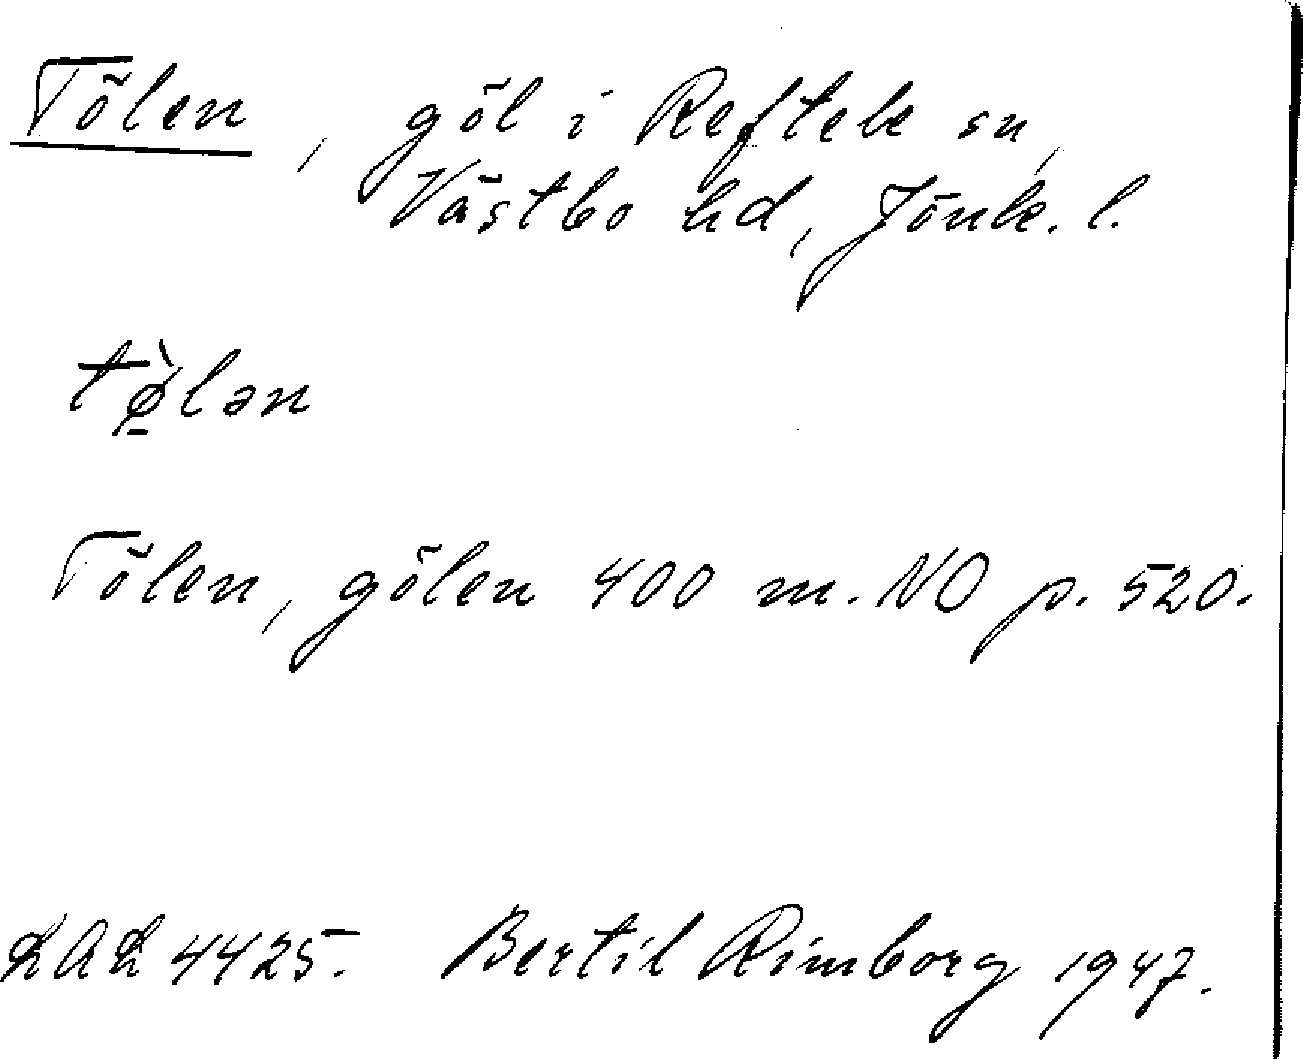 Tölen, göl i Reftele sn,
Västbo hd, Jönk. l.
tø̠̀lən
Tölen, gölen 400 m. NO p. 520.
LAL 4425. Bertil Rimborg 1947.